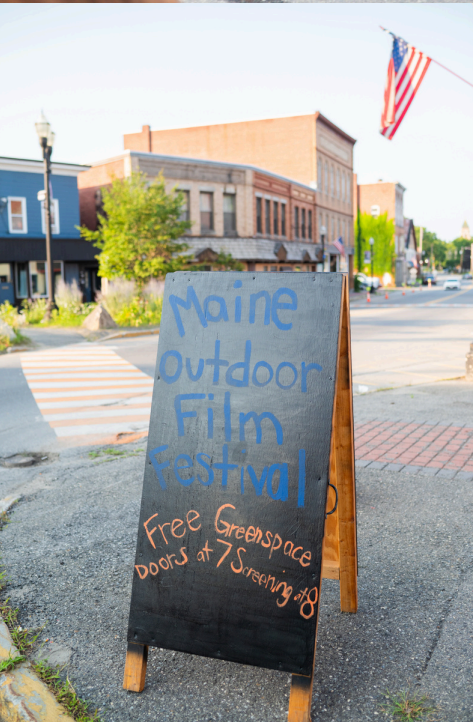 Maine
Outdoor
Film
Festival
Free Greenspace
Doors at 7 Screening at 8